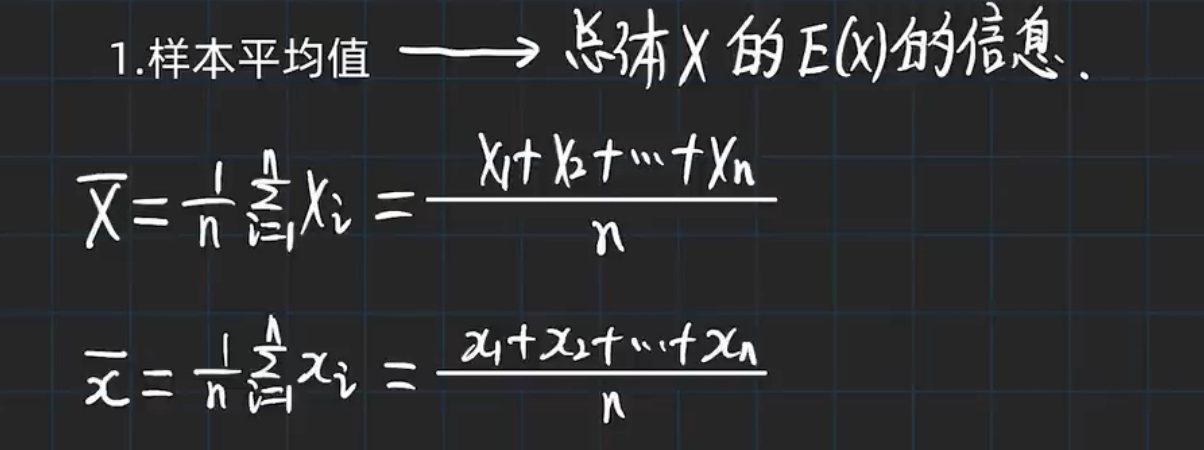 1.样本平均值 → 总体X的E(X)的信息.
X̄ = 1/n ∑_{i=1}^{n} X_i = (X_1+X_2+⋯+X_n)/n
x̄ = 1/n ∑_{i=1}^{n} x_i = (x_1+x_2+⋯+x_n)/n